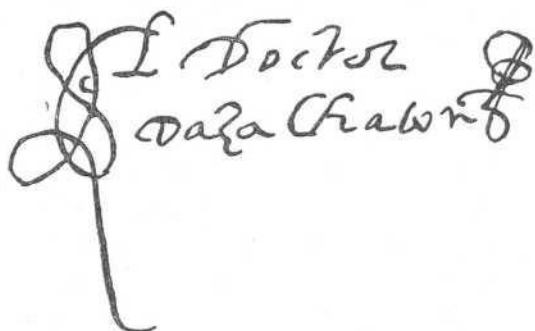 El Doctor
Daza Chacon